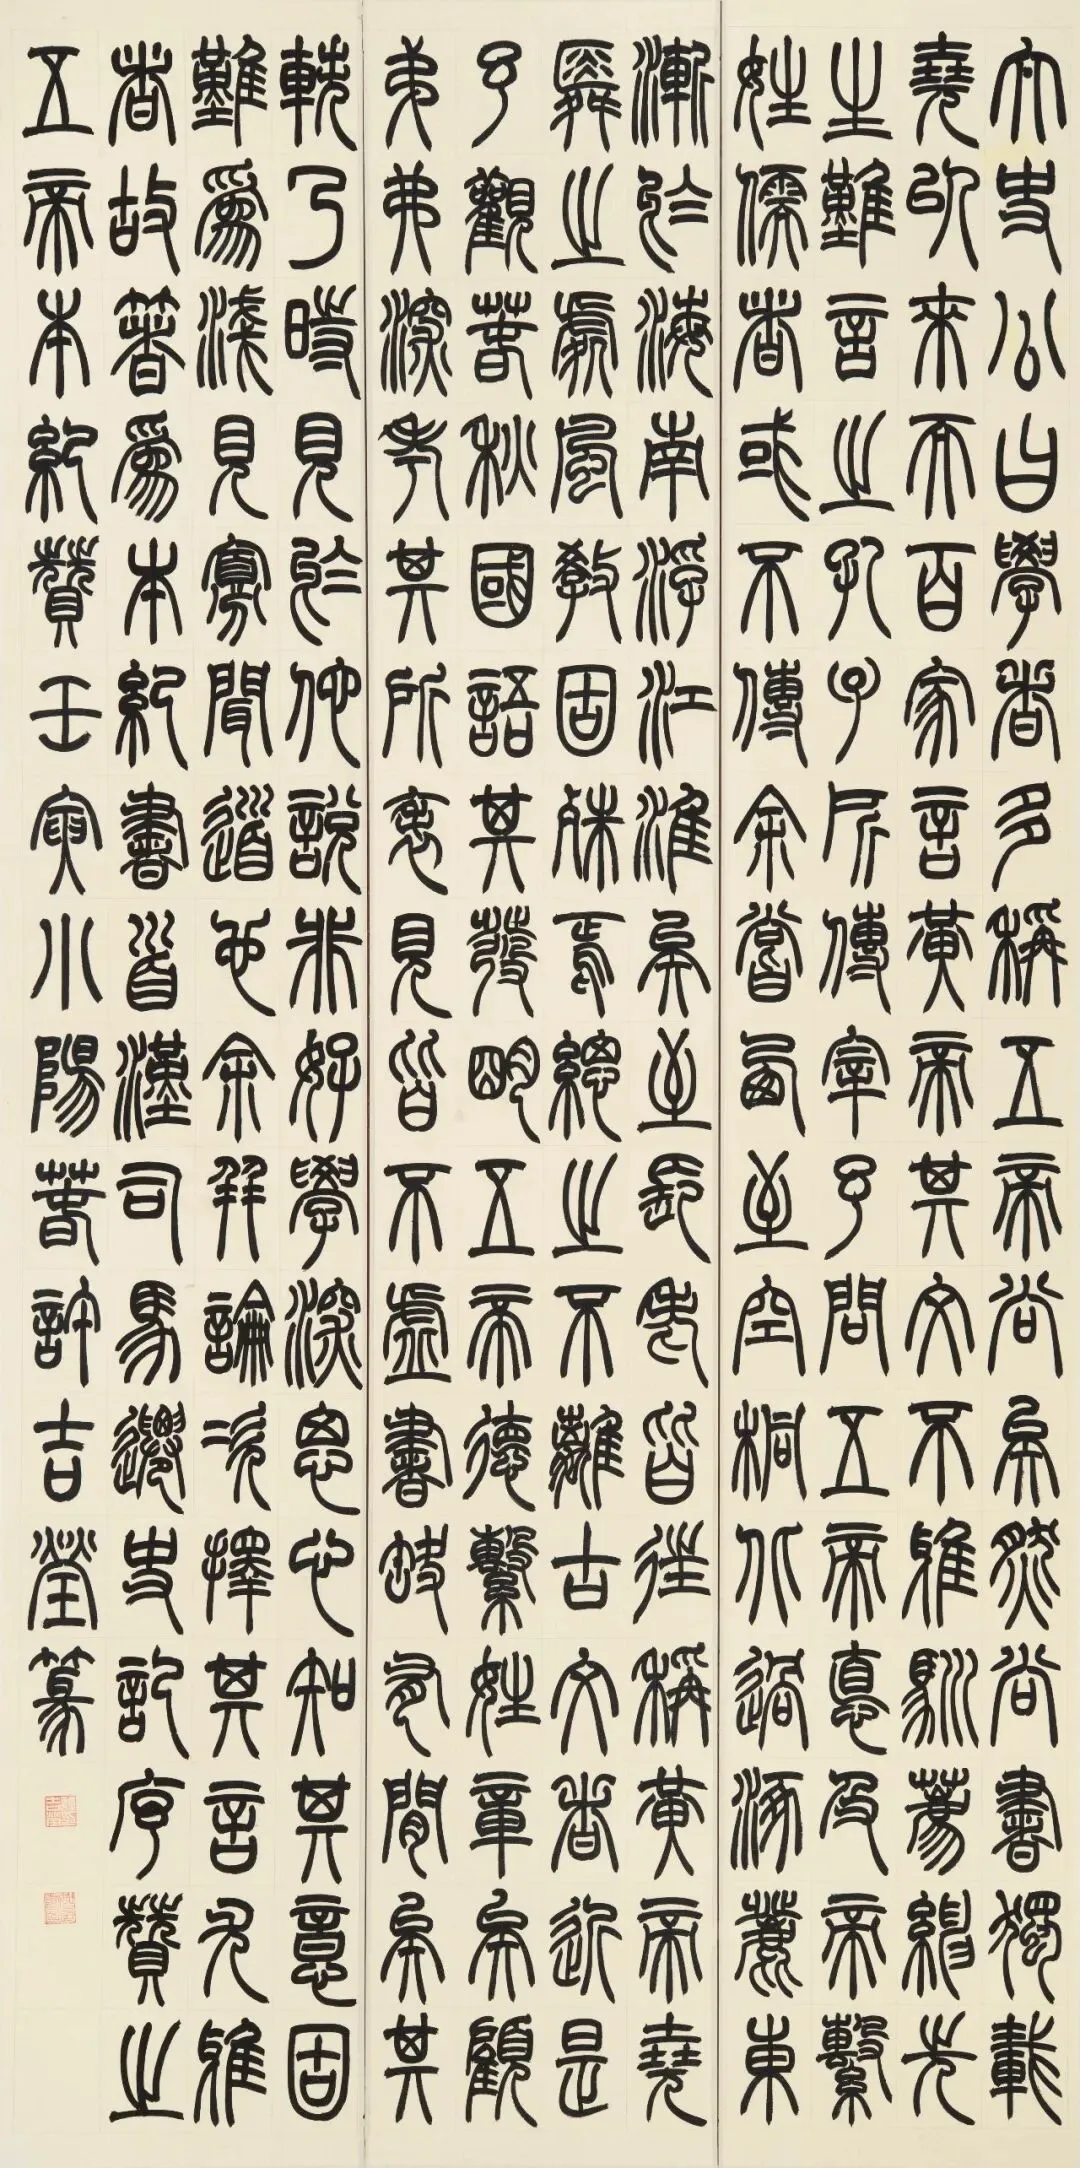 太史公曰學者多稱五帝尚矣然尚書獨載
堯以來而百家言黃帝其文不雅馴薦紳先
生難言之孔子所傳宰予問五帝德及帝繫
姓儒者或不傳余嘗西至空桐北過涿鹿東
漸於海南浮江淮矣至長老皆往稱黃帝堯
舜之處風教固殊焉總之不離古文者近是
予觀春秋國語其發明五帝德繫姓章矣顧
弟弗深考其所表見皆不虛書缺有間矣其
軼乃時見於他說非好學深思心知其意固
難為淺見寡聞道也余并論次擇其言尤雅
者故著為本紀書首漢司馬遷史記序贊之
五帝本紀贊壬寅小陽春許吉瑩篆